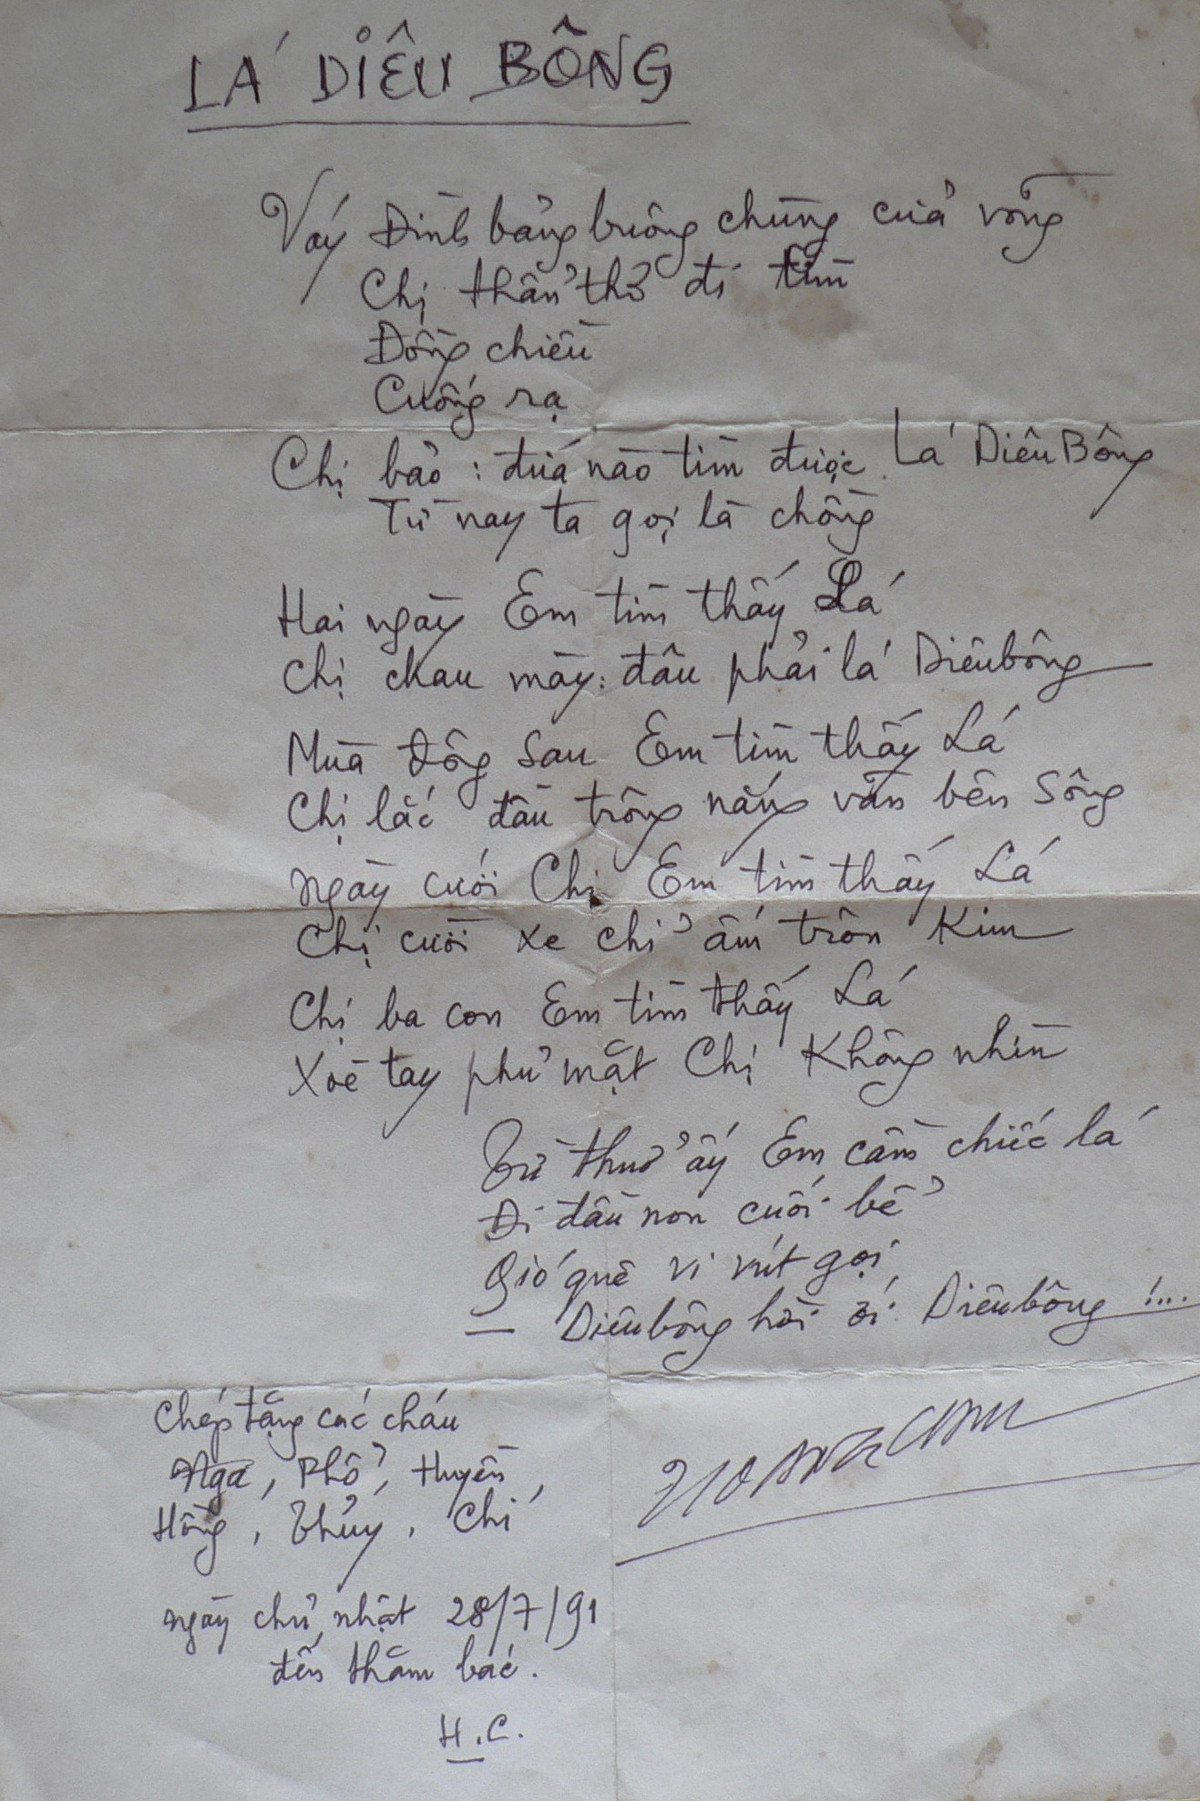 LÁ DIÊU BÔNG
Váy Đình bảng buông chùng cửa võng
Chị thẩn thơ đi tìm
Đồng chiều
Cuống rạ
Chị bảo : đứa nào tìm được Lá Diêu Bông
Từ nay ta gọi là chồng
Hai ngày Em tìm thấy Lá
Chị chau mày: đâu phải lá Diêubông
Mùa đông sau Em tìm thấy Lá
Chị lắc đầu trông nắng vãn bên sông
Ngày cưới Chị Em tìm thấy Lá
Chị cười xe chỉ ấm trôn Kim
Chị ba con Em tìm thấy Lá
Xoè tay phủ mặt Chị Không nhìn
Từ thuở ấy Em cầm chiếc lá
Đi đầu non cuối bể
Gió quê vi vút gọi
— Diêubông hời ới Diêubông !...
Chép tặng các cháu
Nga, Phổ, Huyền,
Hồng, Thủy, Chí
HOANGCAM
ngày chủ nhật 28/7/91
đến thăm bác.
H.C.